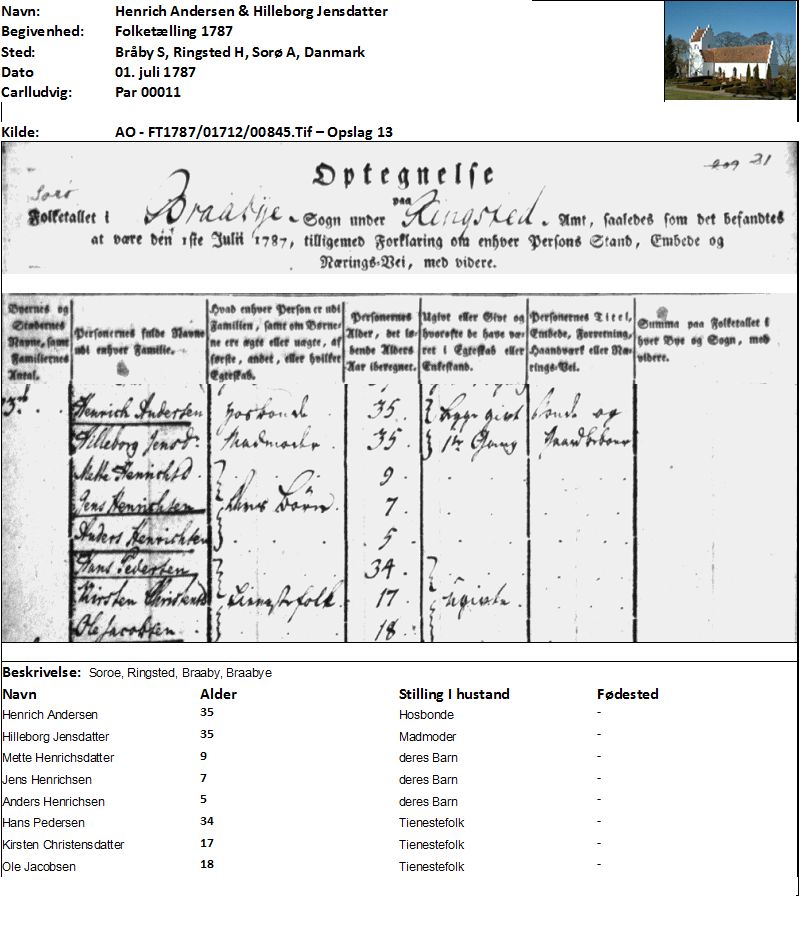 Navn: Henrich Andersen & Hilleborg Jensdatter
Begivenhed: Folketælling 1787
Sted: Bråby S, Ringsted H, Sorø A, Danmark
Dato 01. juli 1787
Carlludvig: Par 00011
Kilde: AO - FT1787/01712/00845.Tif – Opslag 13
Optegnelse
31
Sorø paa
Folketallet i Braabye Sogn under Ringsted Amt, saaledes som det befandtes
at være den 1ste Julii 1787, tilligemed Forklaring om enhver Persons Stand, Embede og
Nærings-Vei, med videre.
Byernes og Stædernes Navne, samt Familiernes Antal.
Personernes fulde Navne udi enhver Familie.
Hvad enhver Person er udi Familien, samt om Børnene ere ægte eller uægte, af første, andet, eller hvilket Egteskab.
Personernes Alder, det løbende Alders Aar iberegnet.
Ugivt eller Givt og hvorofte de have været i Egteskab eller Enkestand.
Personernes Titel, Embede, Forretning, Haandværk eller Nærings-Vei.
Summa paa Folketallet i hver Bye og Sogn, med videre.
Henrich Andersen Hosbonde 35 begge givt bonde og
Hilleborg Jensd: Madmoder 35 1te Gang Gaardbeboer
Mette Henrichsd. 9
Jens Henrichsen deres Børn 7
Anders Henrichsen 5
Hans Pedersen 34
Kirsten Christensd Tienestefolk 17 ugivte
Ole Jacobsen 18
Beskrivelse: Soroe, Ringsted, Braaby, Braabye
Navn Alder Stilling I hustand Fødested
Henrich Andersen 35 Hosbonde -
Hilleborg Jensdatter 35 Madmoder -
Mette Henrichsdatter 9 deres Barn -
Jens Henrichsen 7 deres Barn -
Anders Henrichsen 5 deres Barn -
Hans Pedersen 34 Tienestefolk -
Kirsten Christensdatter 17 Tienestefolk -
Ole Jacobsen 18 Tienestefolk -